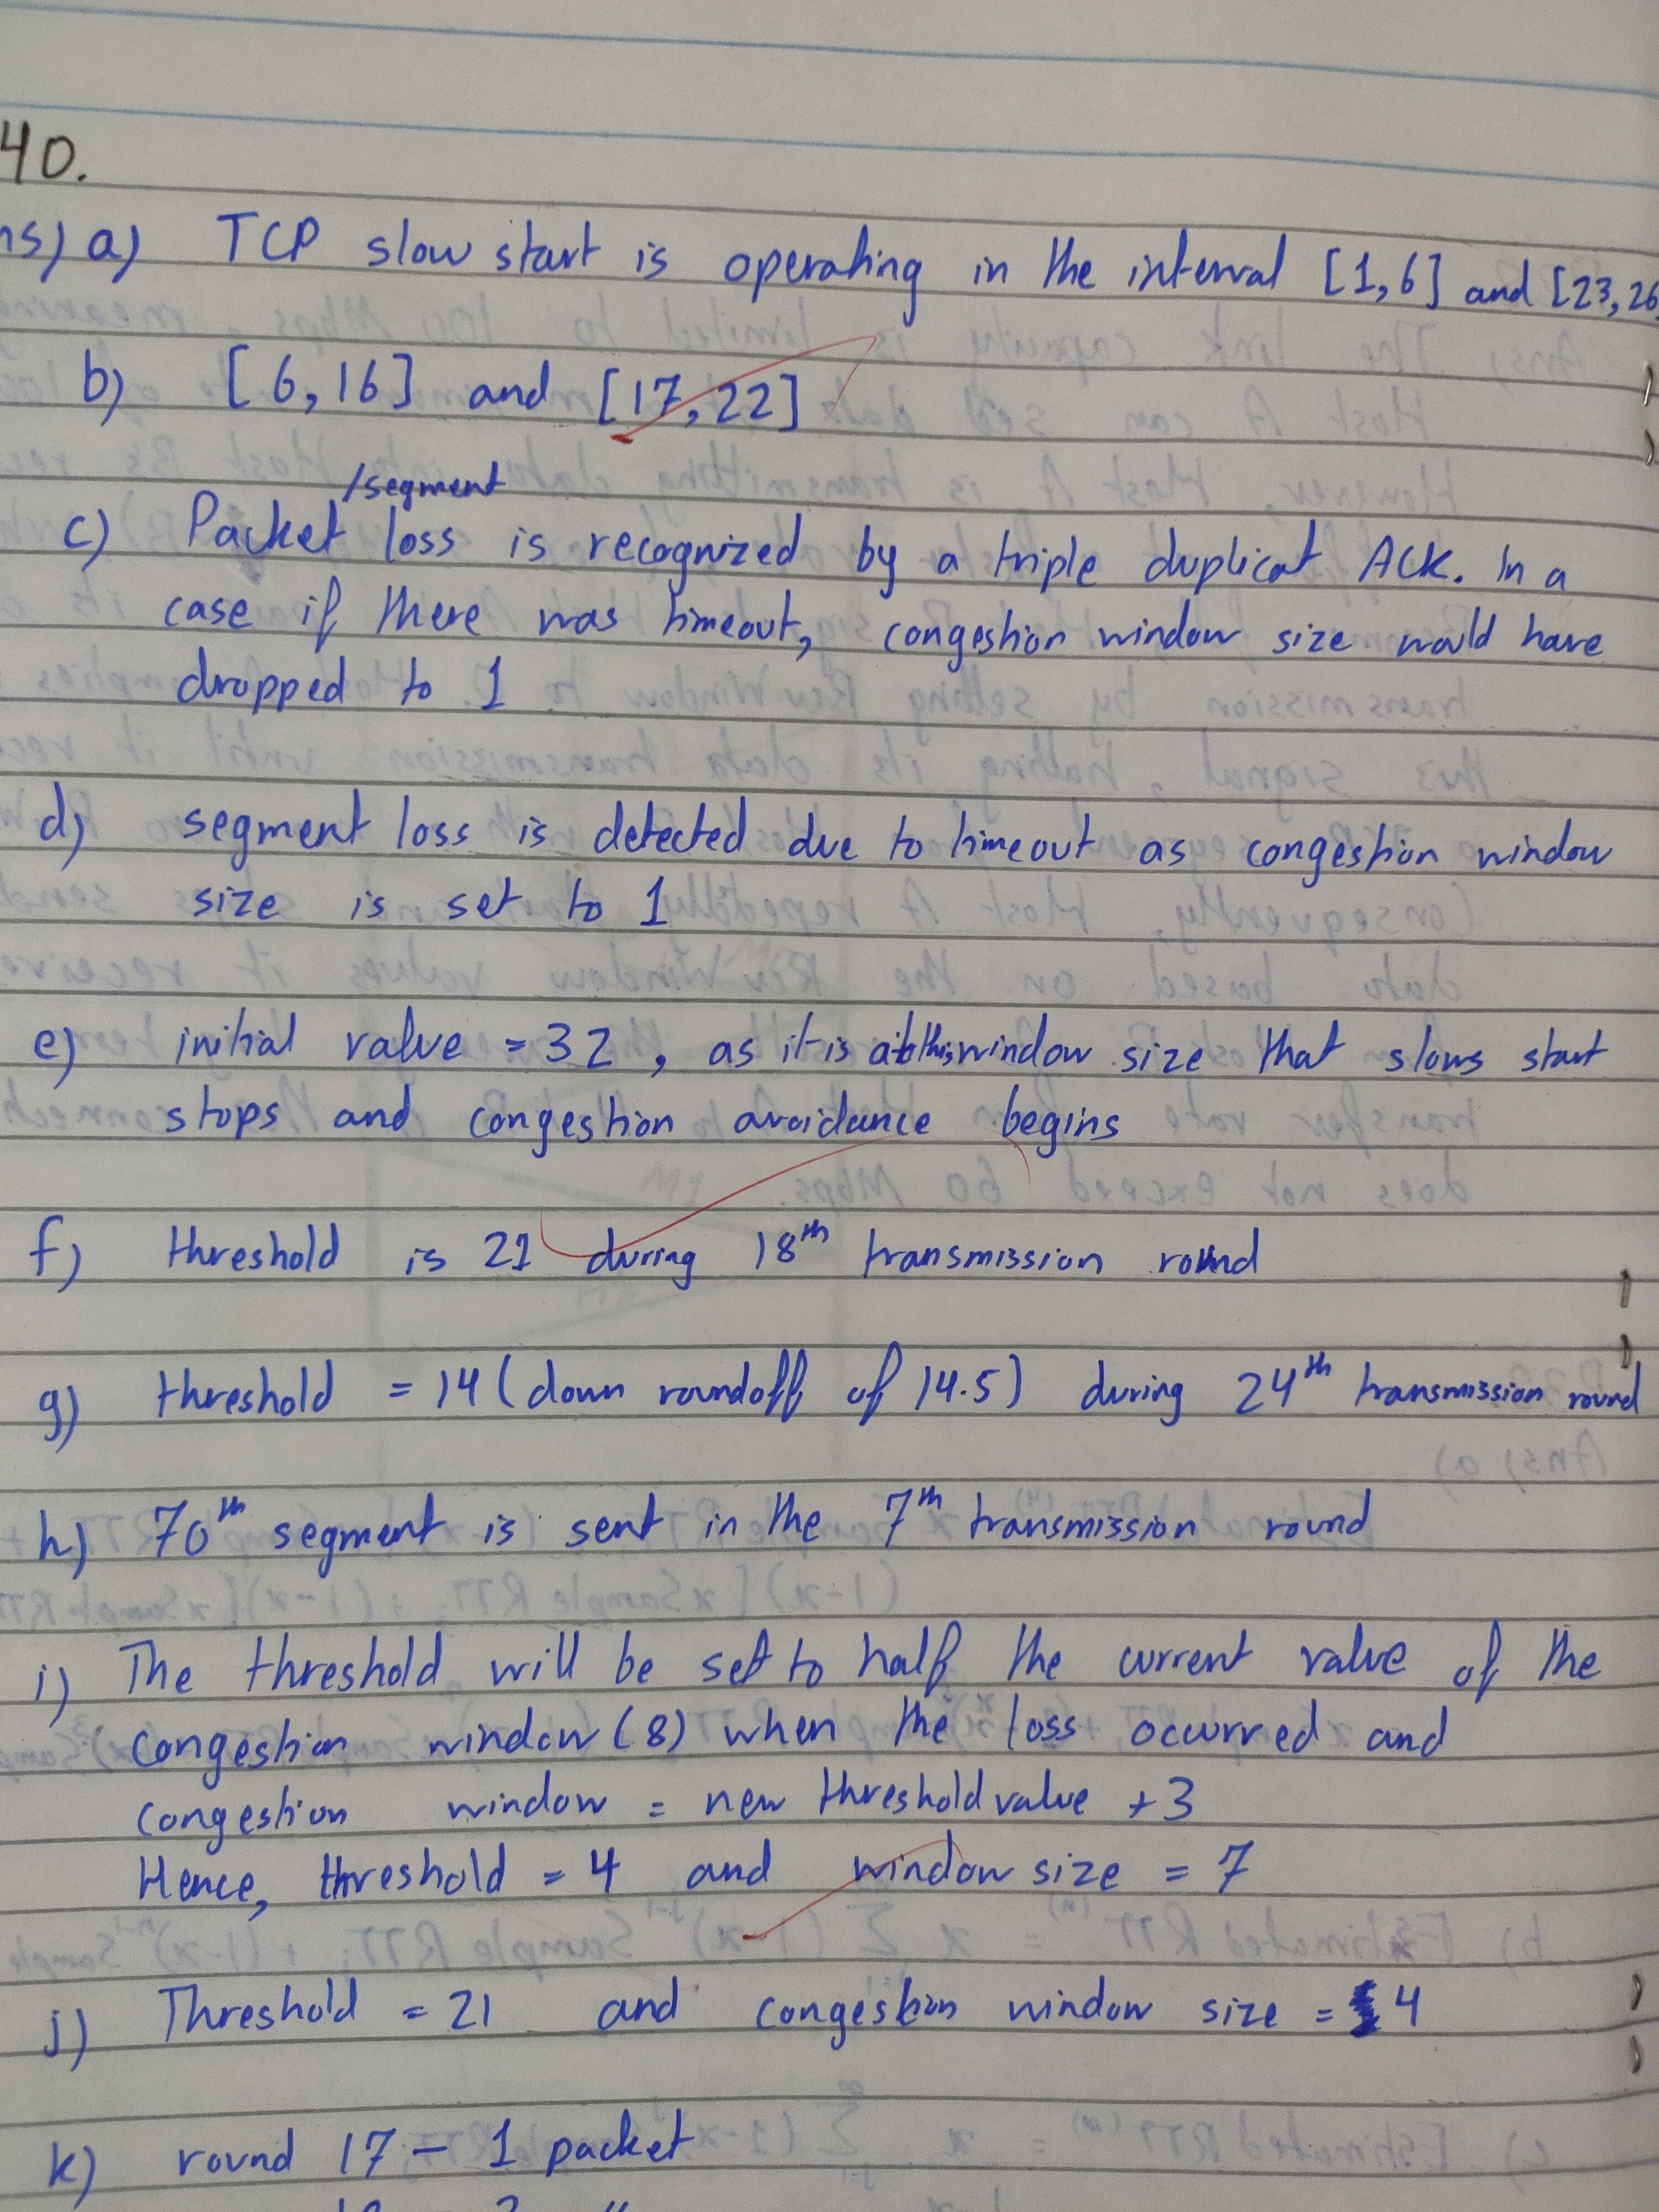 40.
ns) a) TCP slow start is operating in the interval [1,6] and [23,26
b) [6,16] and [17,22]
/segment
c) Packet loss is recognized by a triple duplicat ACK. In a
case if there was timeout, congestion window size would have
dropped to 1
d) segment loss is detected due to timeout as congestion window
size is set to 1
e) initial value = 32, as it is at this window size that slows start
stops and congestion avoidance begins
f) threshold is 21 during 18th transmission round
g) threshold = 14 (down roundoff of 14.5) during 24th transmission round
h) 70th segment is sent in the 7th transmission round
i) The threshold will be set to half the current value of the
congestion window (8) when the loss occurred and
congestion window = new threshold value + 3
Hence, threshold = 4 and window size = 7
j) Threshold = 21 and congestion window size = 4
k) round 17 - 1 packet